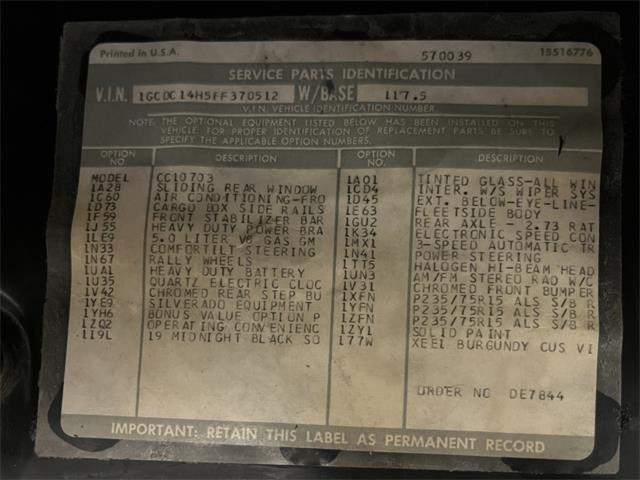 Printed in U.S.A. 570039 15516776
SERVICE PARTS IDENTIFICATION
V.I.N. 1GCDC14H5FF370512 W/BASE 117.5
V.I.N. VEHICLE IDENTIFICATION NUMBER
NOTE: THE OPTIONAL EQUIPMENT LISTED BELOW HAS BEEN INSTALLED ON THIS
VEHICLE. FOR PROPER IDENTIFICATION OF REPLACEMENT PARTS BE SURE TO
SPECIFY THE APPLICABLE OPTION NUMBERS.
OPTION NO. DESCRIPTION OPTION NO. DESCRIPTION
MODEL CC10703 1A01 TINTED GLASS-ALL WIN
1A28 SLIDING REAR WINDOW 1CD4 INTER. W/S WIPER SYS
1C60 AIR CONDITIONING-FRO 1D45 EXT. BELOW-EYE-LINE-
1D73 CARGO BOX SIDE RAILS 1E63 FLEETSIDE BODY
1F59 FRONT STABILIZER BAR 1GU2 REAR AXLE - 2.73 RAT
1J55 HEAVY DUTY POWER BRA 1K34 ELECTRONIC SPEED CON
1LE9 5.0 LITER V8 GAS GM 1MX1 3-SPEED AUTOMATIC TR
1N33 COMFORTILT STEERING 1N41 POWER STEERING
1N67 RALLY WHEELS 1TT5 HALOGEN HI-BEAM HEAD
1UA1 HEAVY DUTY BATTERY 1UN3 AM/FM STEREO RAD W/C
1U35 QUARTZ ELECTRIC CLOC 1V31 CHROMED FRONT BUMPER
1V42 CHROMED REAR STEP BU 1XFN P235/75R15 ALS S/B R
1YE9 SILVERADO EQUIPMENT 1YFN P235/75R15 ALS S/B R
1YH6 BONUS VALUE OPTION P 1ZFN P235/75R15 ALS S/B R
1ZQ2 OPERATING CONVENIENC 1ZY1 SOLID PAINT
119L 19 MIDNIGHT BLACK SO 177W XEE1 BURGUNDY CUS VI
ORDER NO DE7844
IMPORTANT: RETAIN THIS LABEL AS PERMANENT RECORD